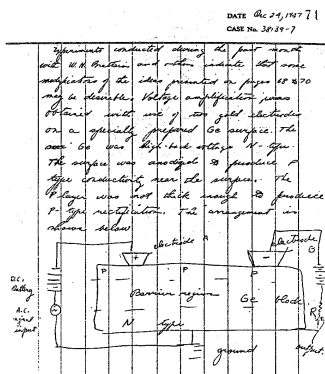 DATE Dec 24, 1947 71
CASE No. 38139-7
Experiments conducted during the past month
with W.H. Brattain and others indicate that some
modifications of the ideas presented on pages 68 to 70
may be desirable. Voltage amplification was
obtained with use of two gold electrodes
on a specially prepared Ge surface. The
Ge was high-back voltage N-type.
The surface was anodized to produce P
type conductivity near the surface. The
P-layer was not thick enough to produce
P-type rectification. The arrangement is
shown below
electrode A
electrode B
+
-
P P P
D.C. battery
A.C. signal input
Barrier region
Ge block
N type
R
ground
output